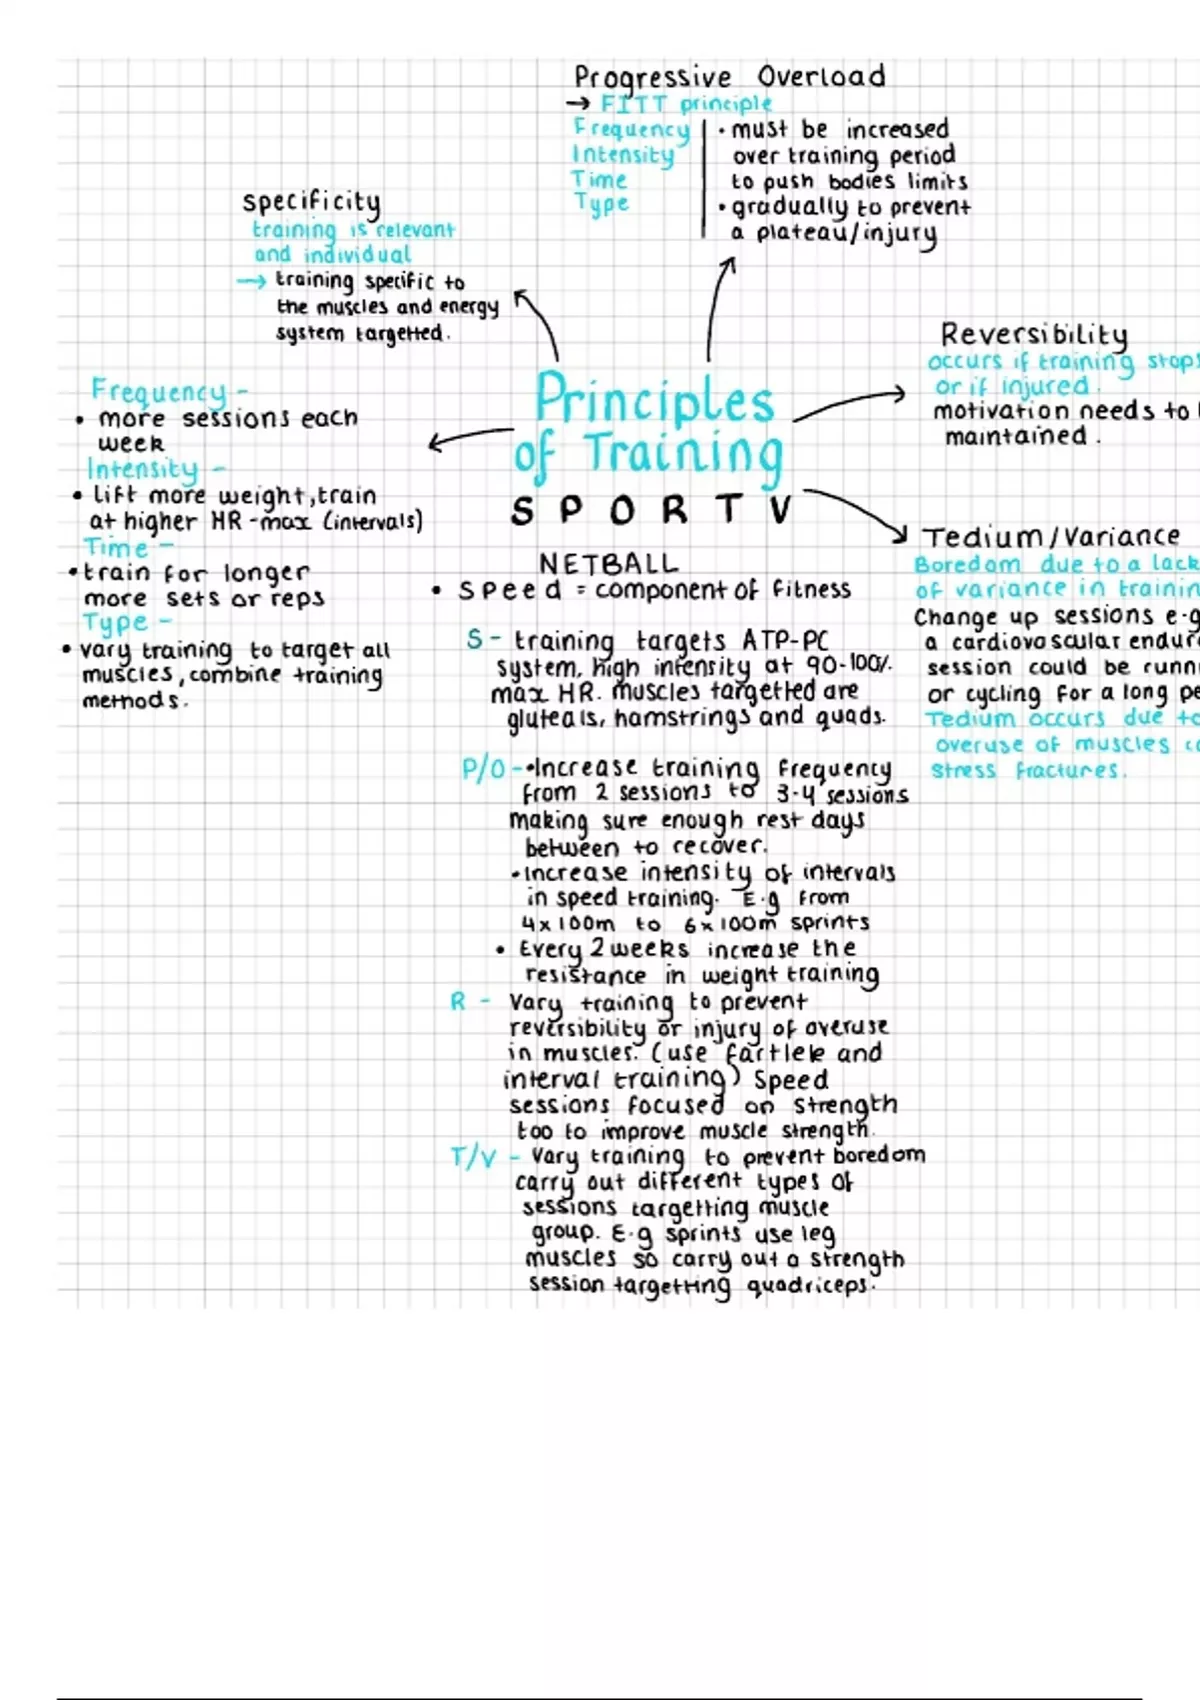 Progressive Overload
→ FITT principle
Frequency
Intensity
Time
Type
• must be increased
over training period
to push bodies limits
• gradually to prevent
a plateau/injury
specificity
training is relevant
and individual
→ training specific to
the muscles and energy
system targetted.
Frequency -
• more sessions each
week
Intensity -
• lift more weight, train
at higher HR-max (intervals)
Time -
• train for longer
more sets or reps
Type -
• vary training to target all
muscles, combine training
methods.
Principles
of Training
S P O R T V
Reversibility
occurs if training stops
or if injured.
motivation needs to
maintained.
Tedium/Variance
Boredom due to a lack
of variance in
Change up sessions e.g
a cardiovascular
session could be
or cycling for a long
Tedium occurs due to
overuse of muscles
stress fractures.
NETBALL
• Speed = component of fitness
S - training targets ATP-PC
system, high intensity at 90-100%.
max HR. muscles targetted are
gluteals, hamstrings and quads.
P/O - • Increase training frequency
from 2 sessions to 3-4 sessions
making sure enough rest days
between to recover.
• Increase intensity of intervals
in speed training. E.g from
4x100m to 6x100m sprints
• Every 2 weeks increase the
resistance in weight training
R - Vary training to prevent
reversibility or injury of overuse
in muscles. (use fartlek and
interval training) Speed
sessions focused on strength
too to improve muscle strength.
T/V - Vary training to prevent boredom
carry out different types of
sessions targetting muscle
group. E.g sprints use leg
muscles so carry out a strength
session targetting quadriceps.